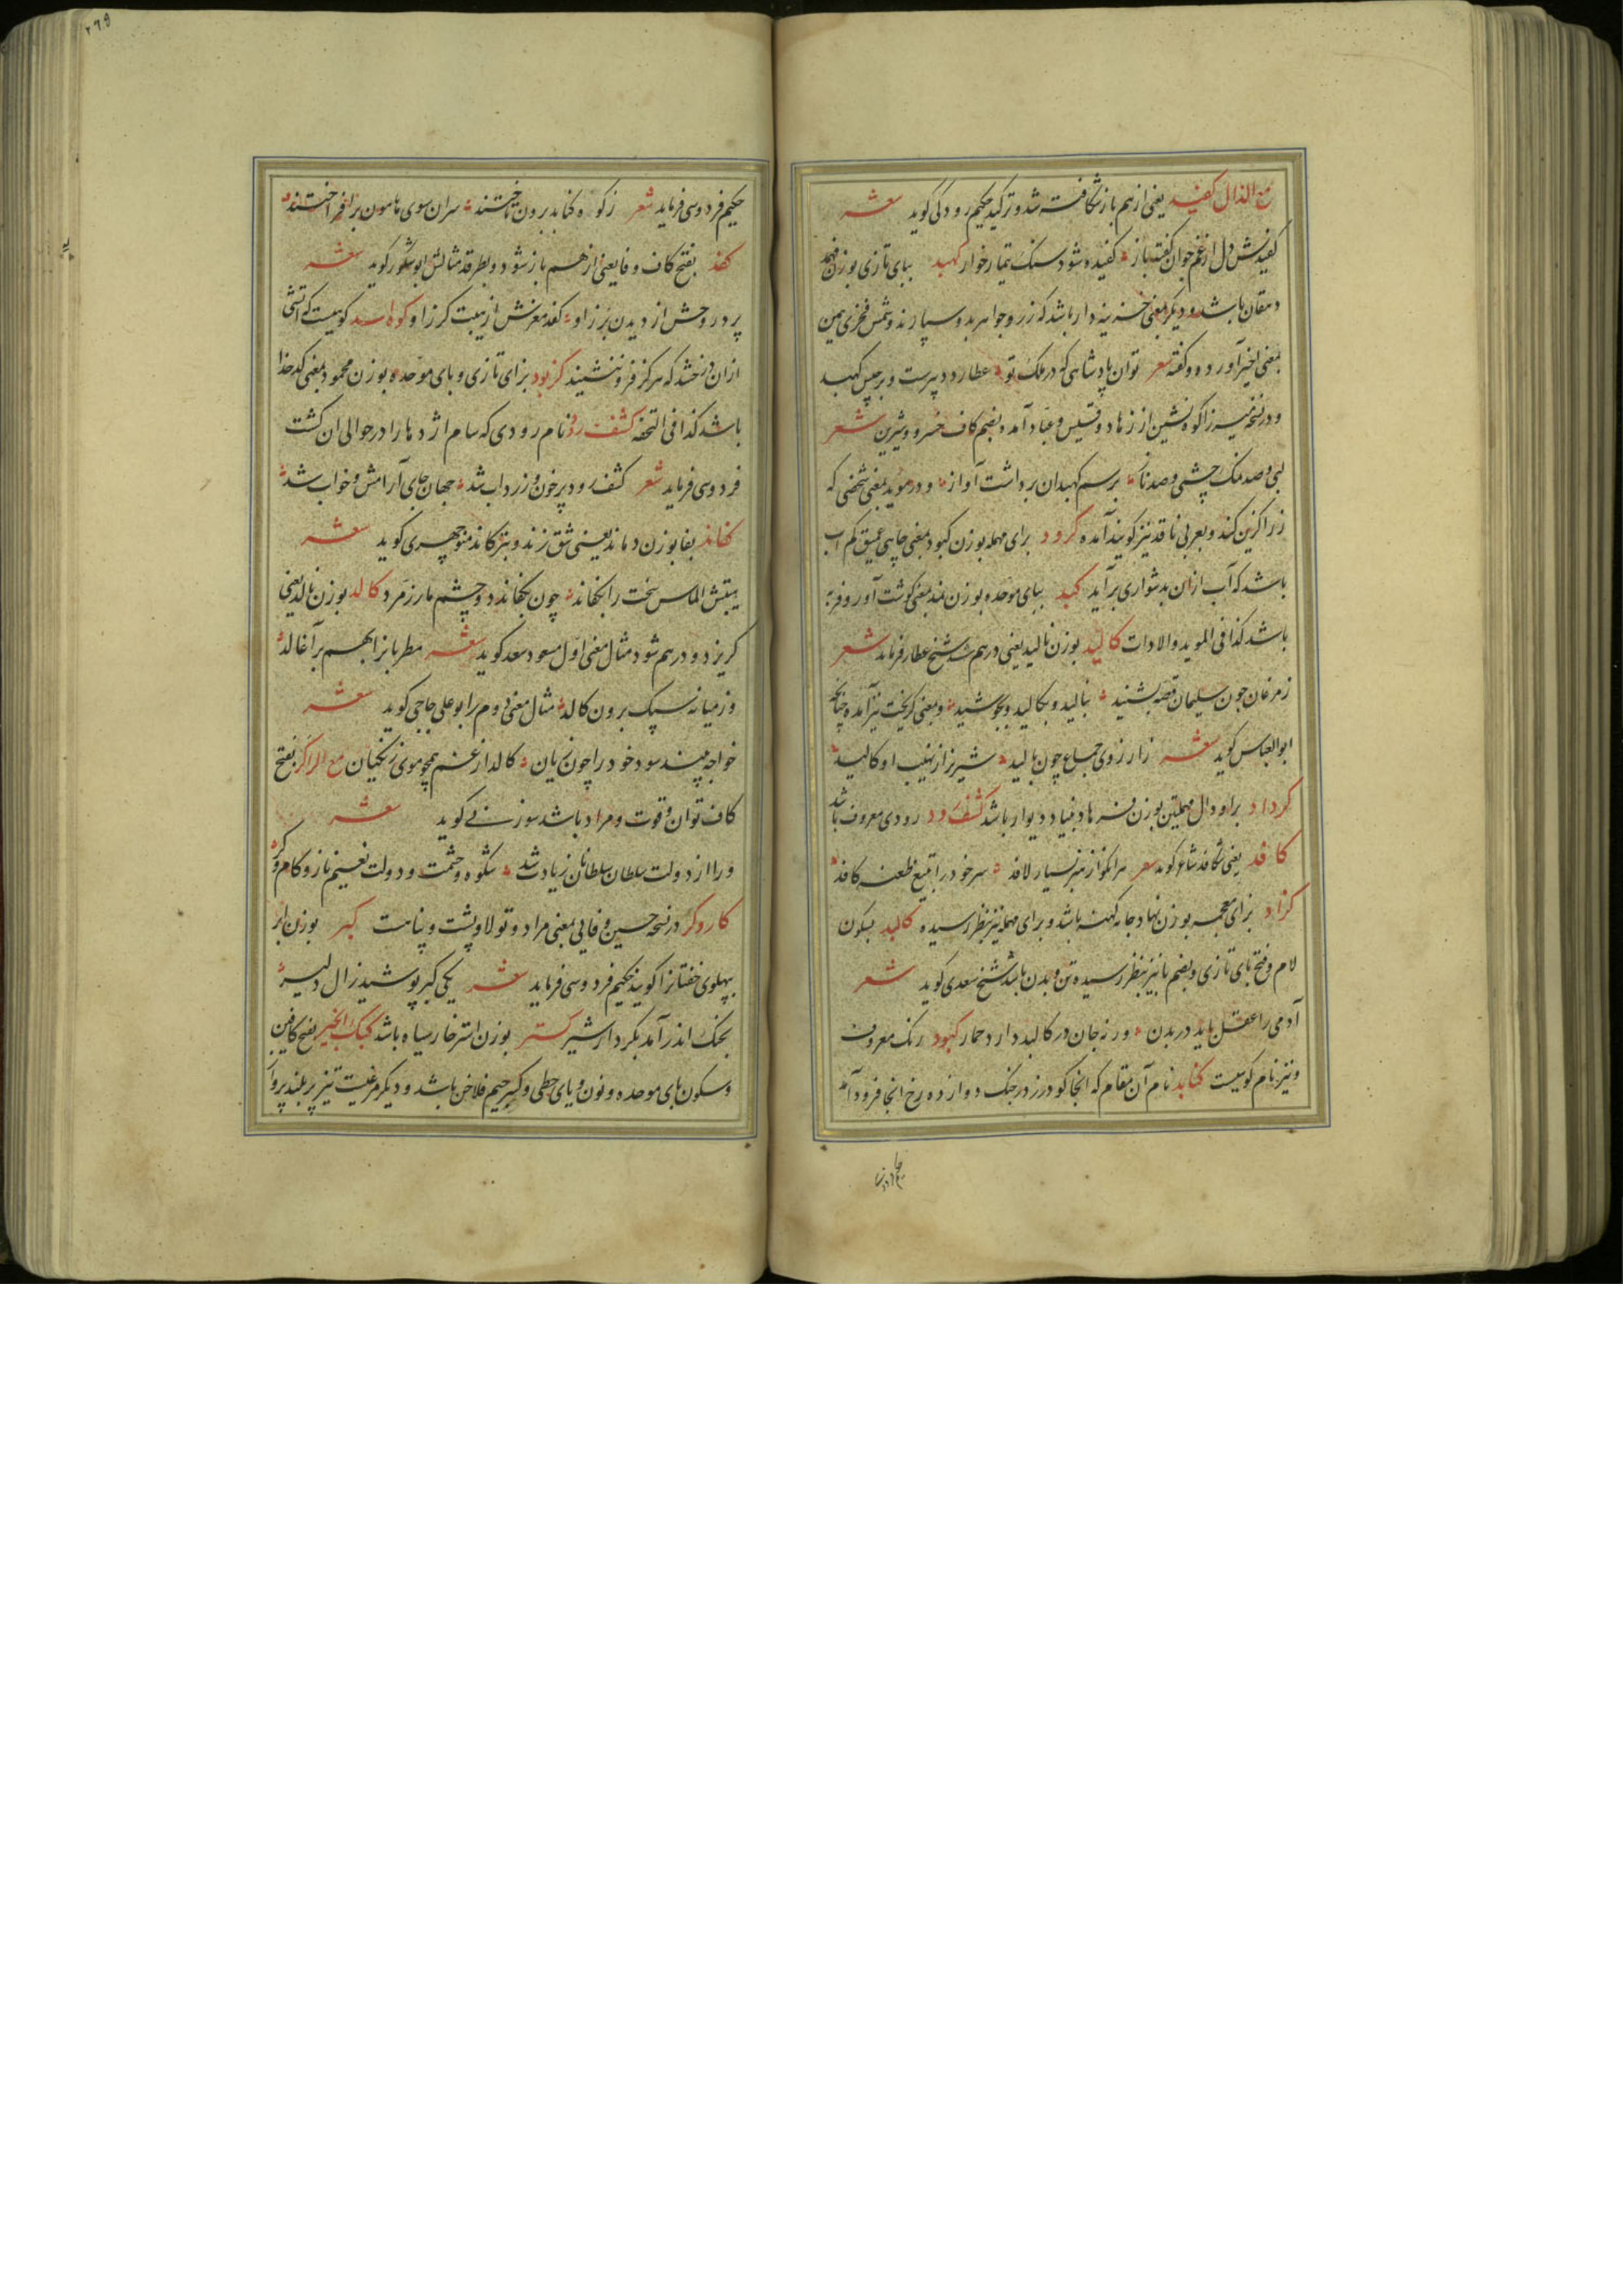 مع الذال کفید یعنی از هم باز شکافته شد و ترکید حکیم رودکی گوید شعر
کفیدش دل از غم چو آن کفته نار کفیده شود سنگ تیمارخوار کهبد ببای تازی بوزن
دهقان باشد و دیگر بمعنی خزینه دار باشد که زر و جواهر بدو سپارند و شمس فخری بهمین
بمعنی اخیر آورده و گفته شعر توان پادشاهی که در ملک تو عطارد دبیرست و برجیس کهبد
و در نسخه میرزا کوه نشین از زهاد و قسیس و عباد آمده بضم کاف خسرو و شیرین شعر
برسم کهبدان برداشت آواز و در موید بمعنی شخصی که
زر را گزین کند و بعربی ناقد نیز گویند آمده کرود برای مهمله بوزن کبود بمعنی چاهی عمیق کم آب
باشد که آب ازان بدشواری برآید کبد ببای موحده بوزن نمد بمعنی گوشت آور و فربه
باشد کذا فی الموید والادات کالید بوزن نالید یعنی درهم شد شیخ عطار فرماید شعر
ز مرغان چون سلیمان قصه بشنید بنالید و بکالید و بجوشید و بمعنی گریخت نیز آمده چنانچه
ابوالعباس گوید شعر زارزوی جماع چون بالید شیر نر از نهیب او کالید
کرداد براو دال مهملتین بوزن فرهاد بنیاد دیوار باشد کشف رود رودی معروف باشد
کافد یعنی شکافد شاعر گوید شعر هر انکو از هنر بسیار لافد سر خود را بتیغ طعنه کافد
کزاد بزای معجمه بوزن نهاد جامه کهنه باشد و برای مهمله نیز بنظر رسیده کالبد بسکون
لام و فتح بای تازی و بضم با نیز بنظر رسیده تن و بدن باشد شیخ سعدی گوید شعر
آدمی را عقل باید در بدن ورنه جان در کالبد دارد حمار کبود رنگ معروف
و نیز نام کوهیست کنابد نام آن مقام که آنجا گودرز در جنگ دوازده رخ آنجا فرود آمد
حکیم فردوسی فرماید شعر ز کوه کنابد برون تاختند سران سوی هامون برافراختند
کفد بفتح کاف و فا یعنی از هم باز شود و بطرقد مثالش ابوشکور گوید شعر
پرد روحش از دیدن برز او کفد مغزش از هیبت گرز او کوه اسد کوهیست که آتشی
ازان درخشد که هرگز فرو ننشیند کزبود بزای تازی و بای موحده بوزن محمود بمعنی کدخدا
باشد کذا فی التحفه کشف رود نام رودی که سام اژدها را در حوالی ان کشت
فردوسی فرماید شعر کشف رود پر خون و زرداب شد جهان جای آرامش و خواب شد
کفاند بفا بوزن دماند یعنی شق زند و بترکاند منوچهری گوید شعر
الماس سخت را بکفاند چون بکفاند دو چشم مار زمرد کالد بوزن نالد یعنی
گریزد و درهم شود مثال معنی اول مسعود سعد گوید شعر مطربانرا بهم برآغالد
وز میانه سبک برون کالد مثال معنی دوم را بوعلی جاجی گوید شعر
خواجه بیند سود خود را چون زیان کالد از غم همچو موی زنگیان مع الرا کر بفتح
کاف توان و قوت و مراد باشد سوزنی گوید شعر
ورا از دولت سلطان سلطانان زیادت شد شکوه و حشمت و دولت نعیم و ناز و کام و کر
کاروکر در نسخه حسین وفایی بمعنی مراد و تولا و پشت و پناهست کبر بوزن ابر
بپهلوی خفتانرا گویند حکیم فردوسی فرماید شعر یکی کبر پوشید زال دلیر
بجنگ اندر آمد بکردار شیر کستر بوزن استر خار سیاه باشد کبک انجیر بفتح کافین
و سکون بای موحده و نون و یای حطی و کسر جیم فلاخن باشد و دیگر مرغیست تیزپر بلند پرواز